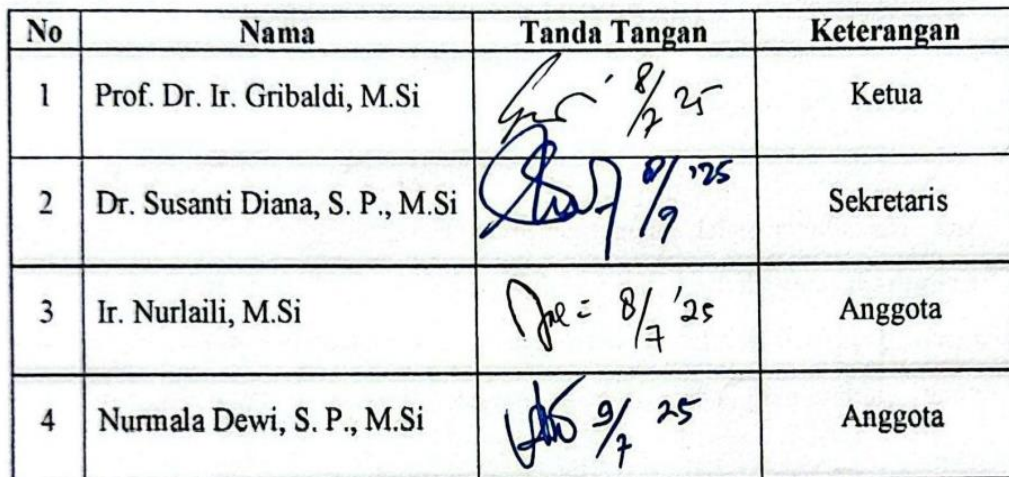 No Nama Tanda Tangan Keterangan
1 Prof. Dr. Ir. Gribaldi, M.Si 8/7 25 Ketua
2 Dr. Susanti Diana, S. P., M.Si 8/9 '25 Sekretaris
3 Ir. Nurlaili, M.Si 8/7 '25 Anggota
4 Nurmala Dewi, S. P., M.Si 9/7 25 Anggota